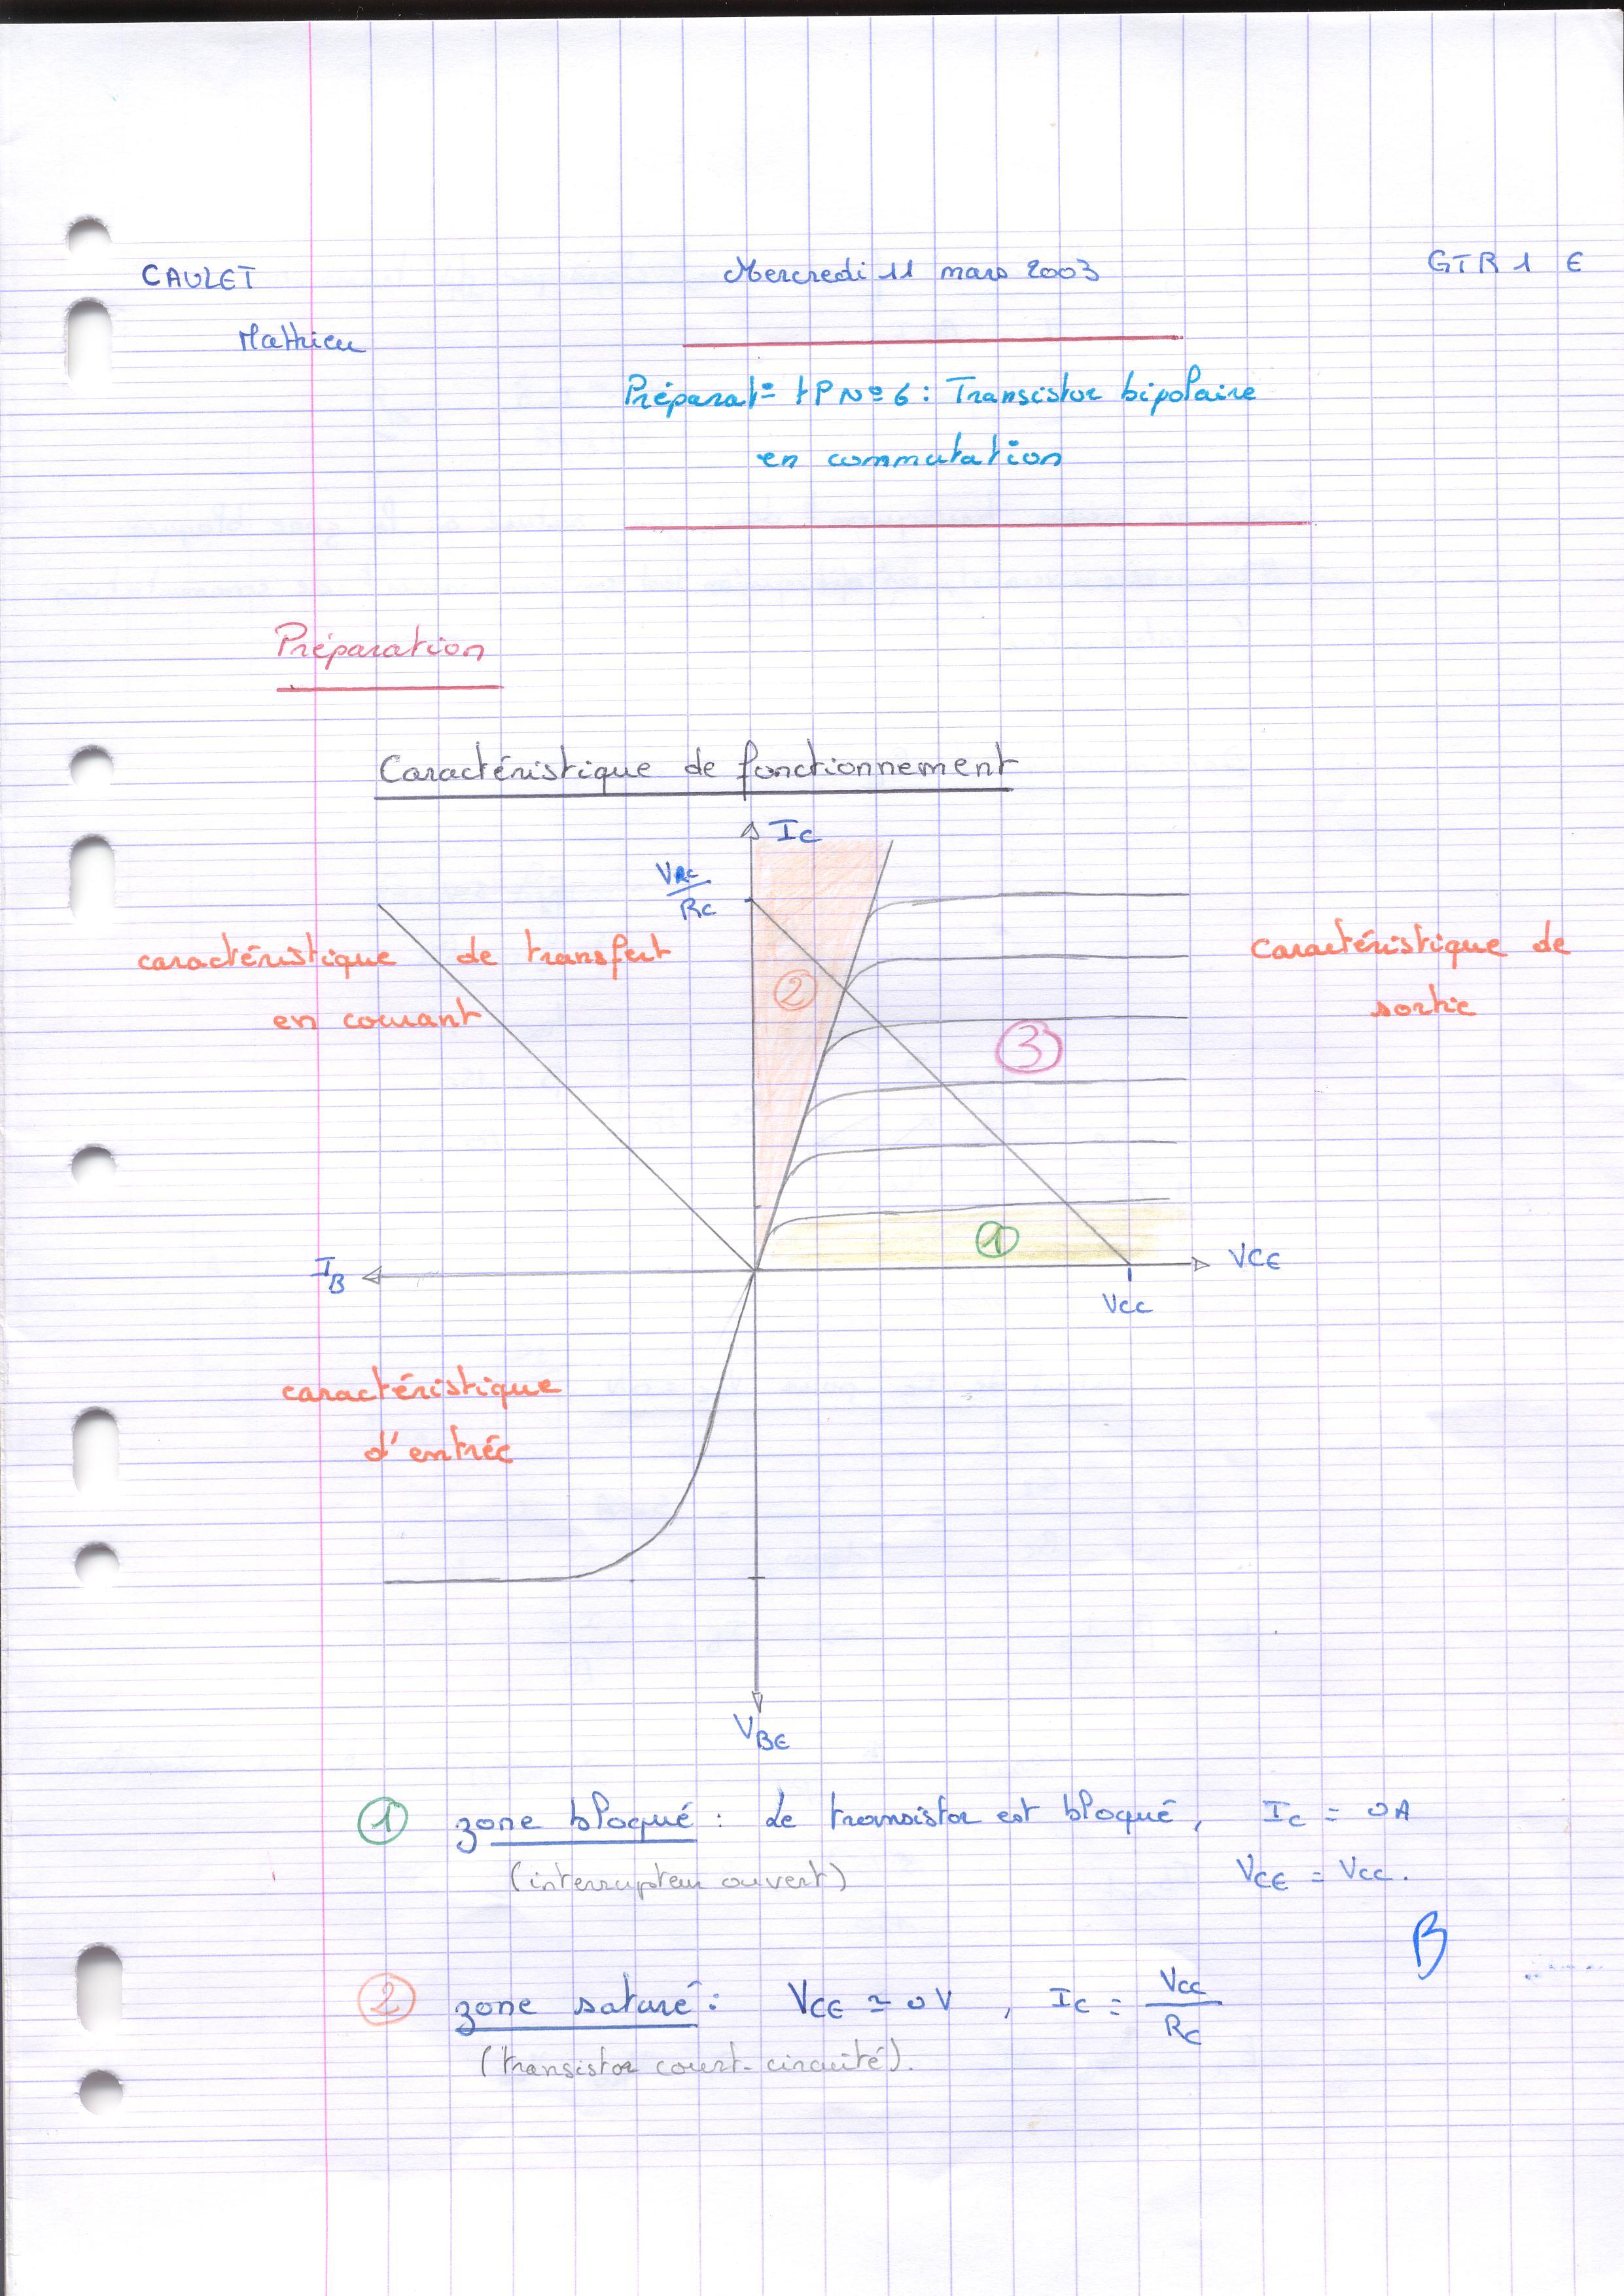 CAULET
Mercredi 11 mars 2003
GTR 1 E
Mathieu
Préparat° TP N° 6 : Transistor bipolaire
en commutation
Préparation
Caractéristique de fonctionnement
IC
VRC
RC
caractéristique de transfert
en courant
caractéristique de
sortie
2
3
1
IB
VCE
VCC
caractéristique
d'entrée
VBE
1 zone bloqué : Le transistor est bloqué, IC = 0A
(interrupteur ouvert)
VCE = VCC.
B
2 zone saturé : VCE ≃ 0V , IC = VCC / RC
(transistor court-circuité).